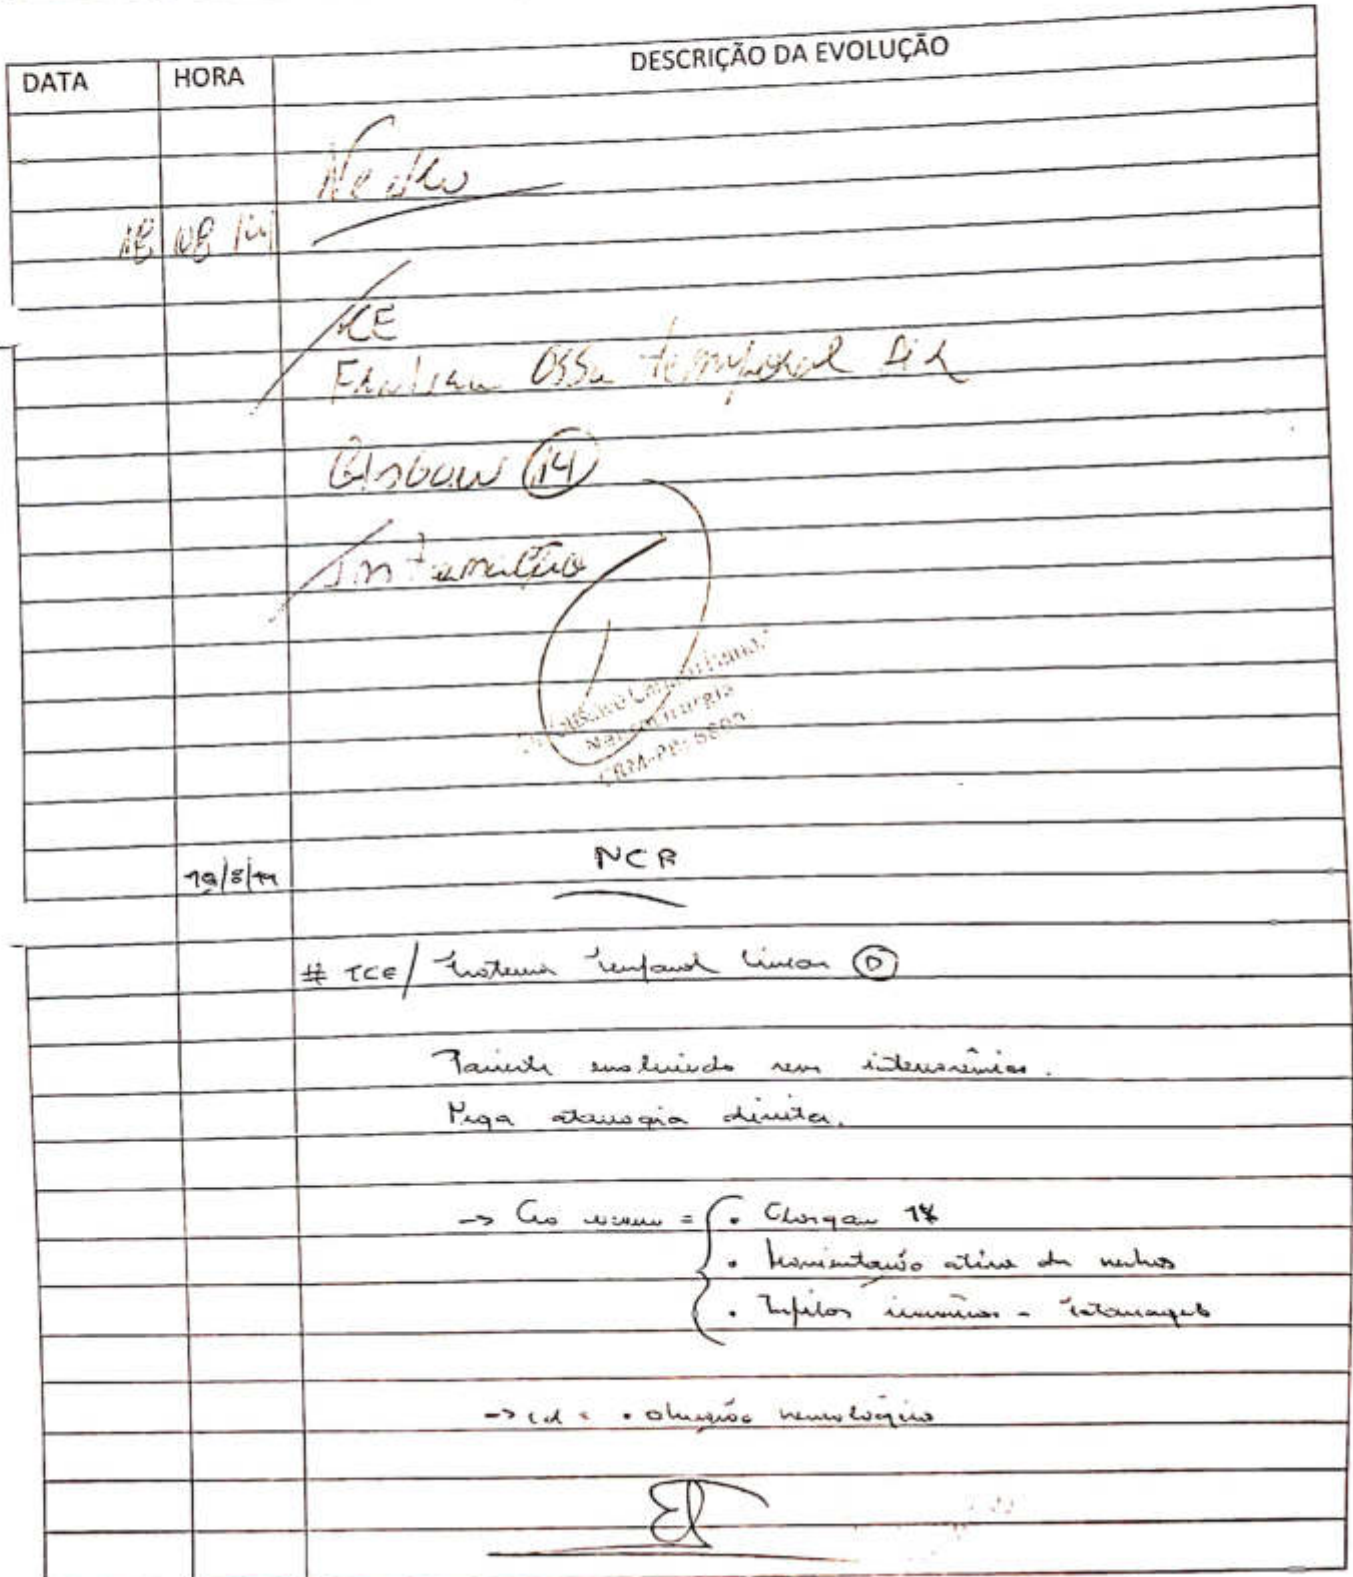 DATA HORA DESCRIÇÃO DA EVOLUÇÃO
Neuro
TCE
Fratura Osso temporal dir
Glasgow 14
Internação
Neurocirurgia
NCR
# TCE / Fratura temporal linear D
Paciente evoluindo sem intercorrências.
Nega otorragia direita.
-> Ao exame = • Glasgow
• Movimentação ativa dos membros
• Pupilas isocóricas - fotorreagentes
-> cd = • observação neurológica